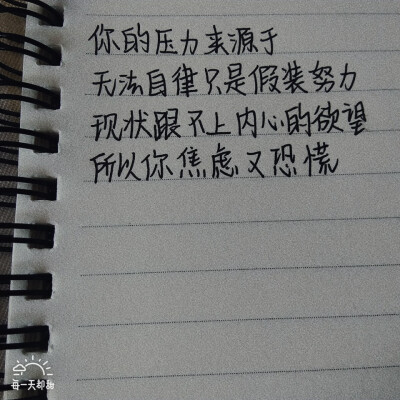 你的压力来源于
无法自律只是假装努力
现状跟不上内心的欲望
所以你焦虑又恐慌